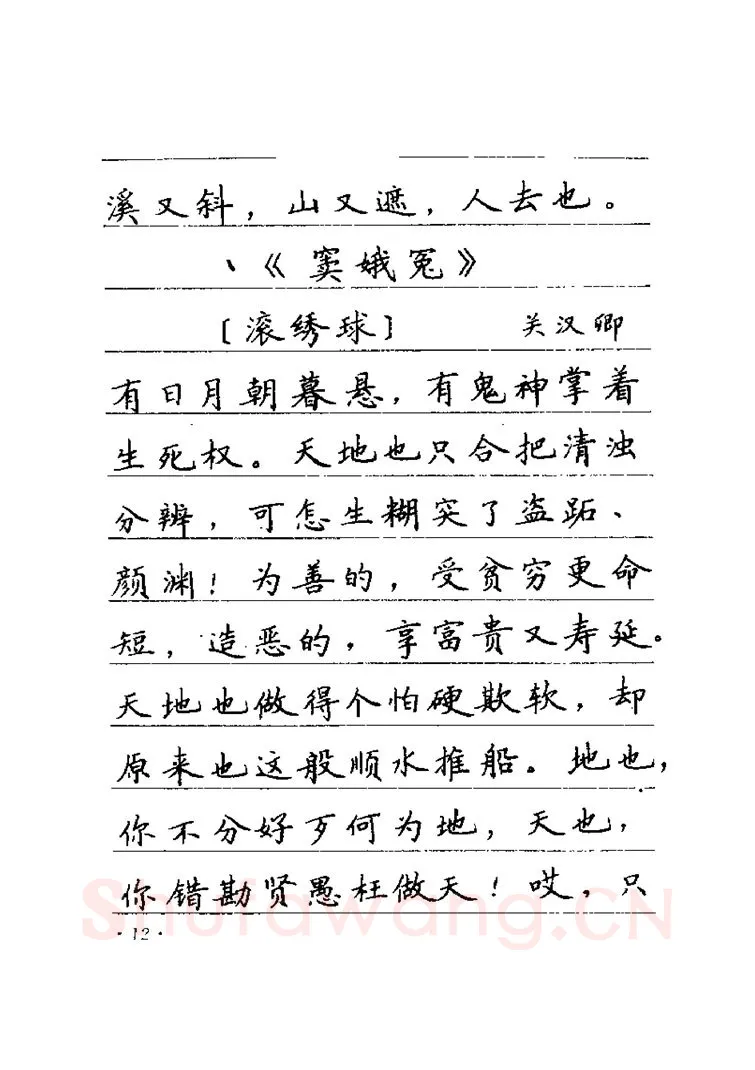 溪又斜，山又遮，人去也。
、《窦娥冤》
[滚绣球] 关汉卿
有日月朝暮悬，有鬼神掌着
生死权。天地也只合把清浊
分辨，可怎生糊突了盗跖、
颜渊！为善的，受贫穷更命
短，造恶的，享富贵又寿延。
天地也做得个怕硬欺软，却
原来也这般顺水推船。地也，
你不分好歹何为地，天也，
你错勘贤愚枉做天！哎，只
Shufawang.CN
·12·